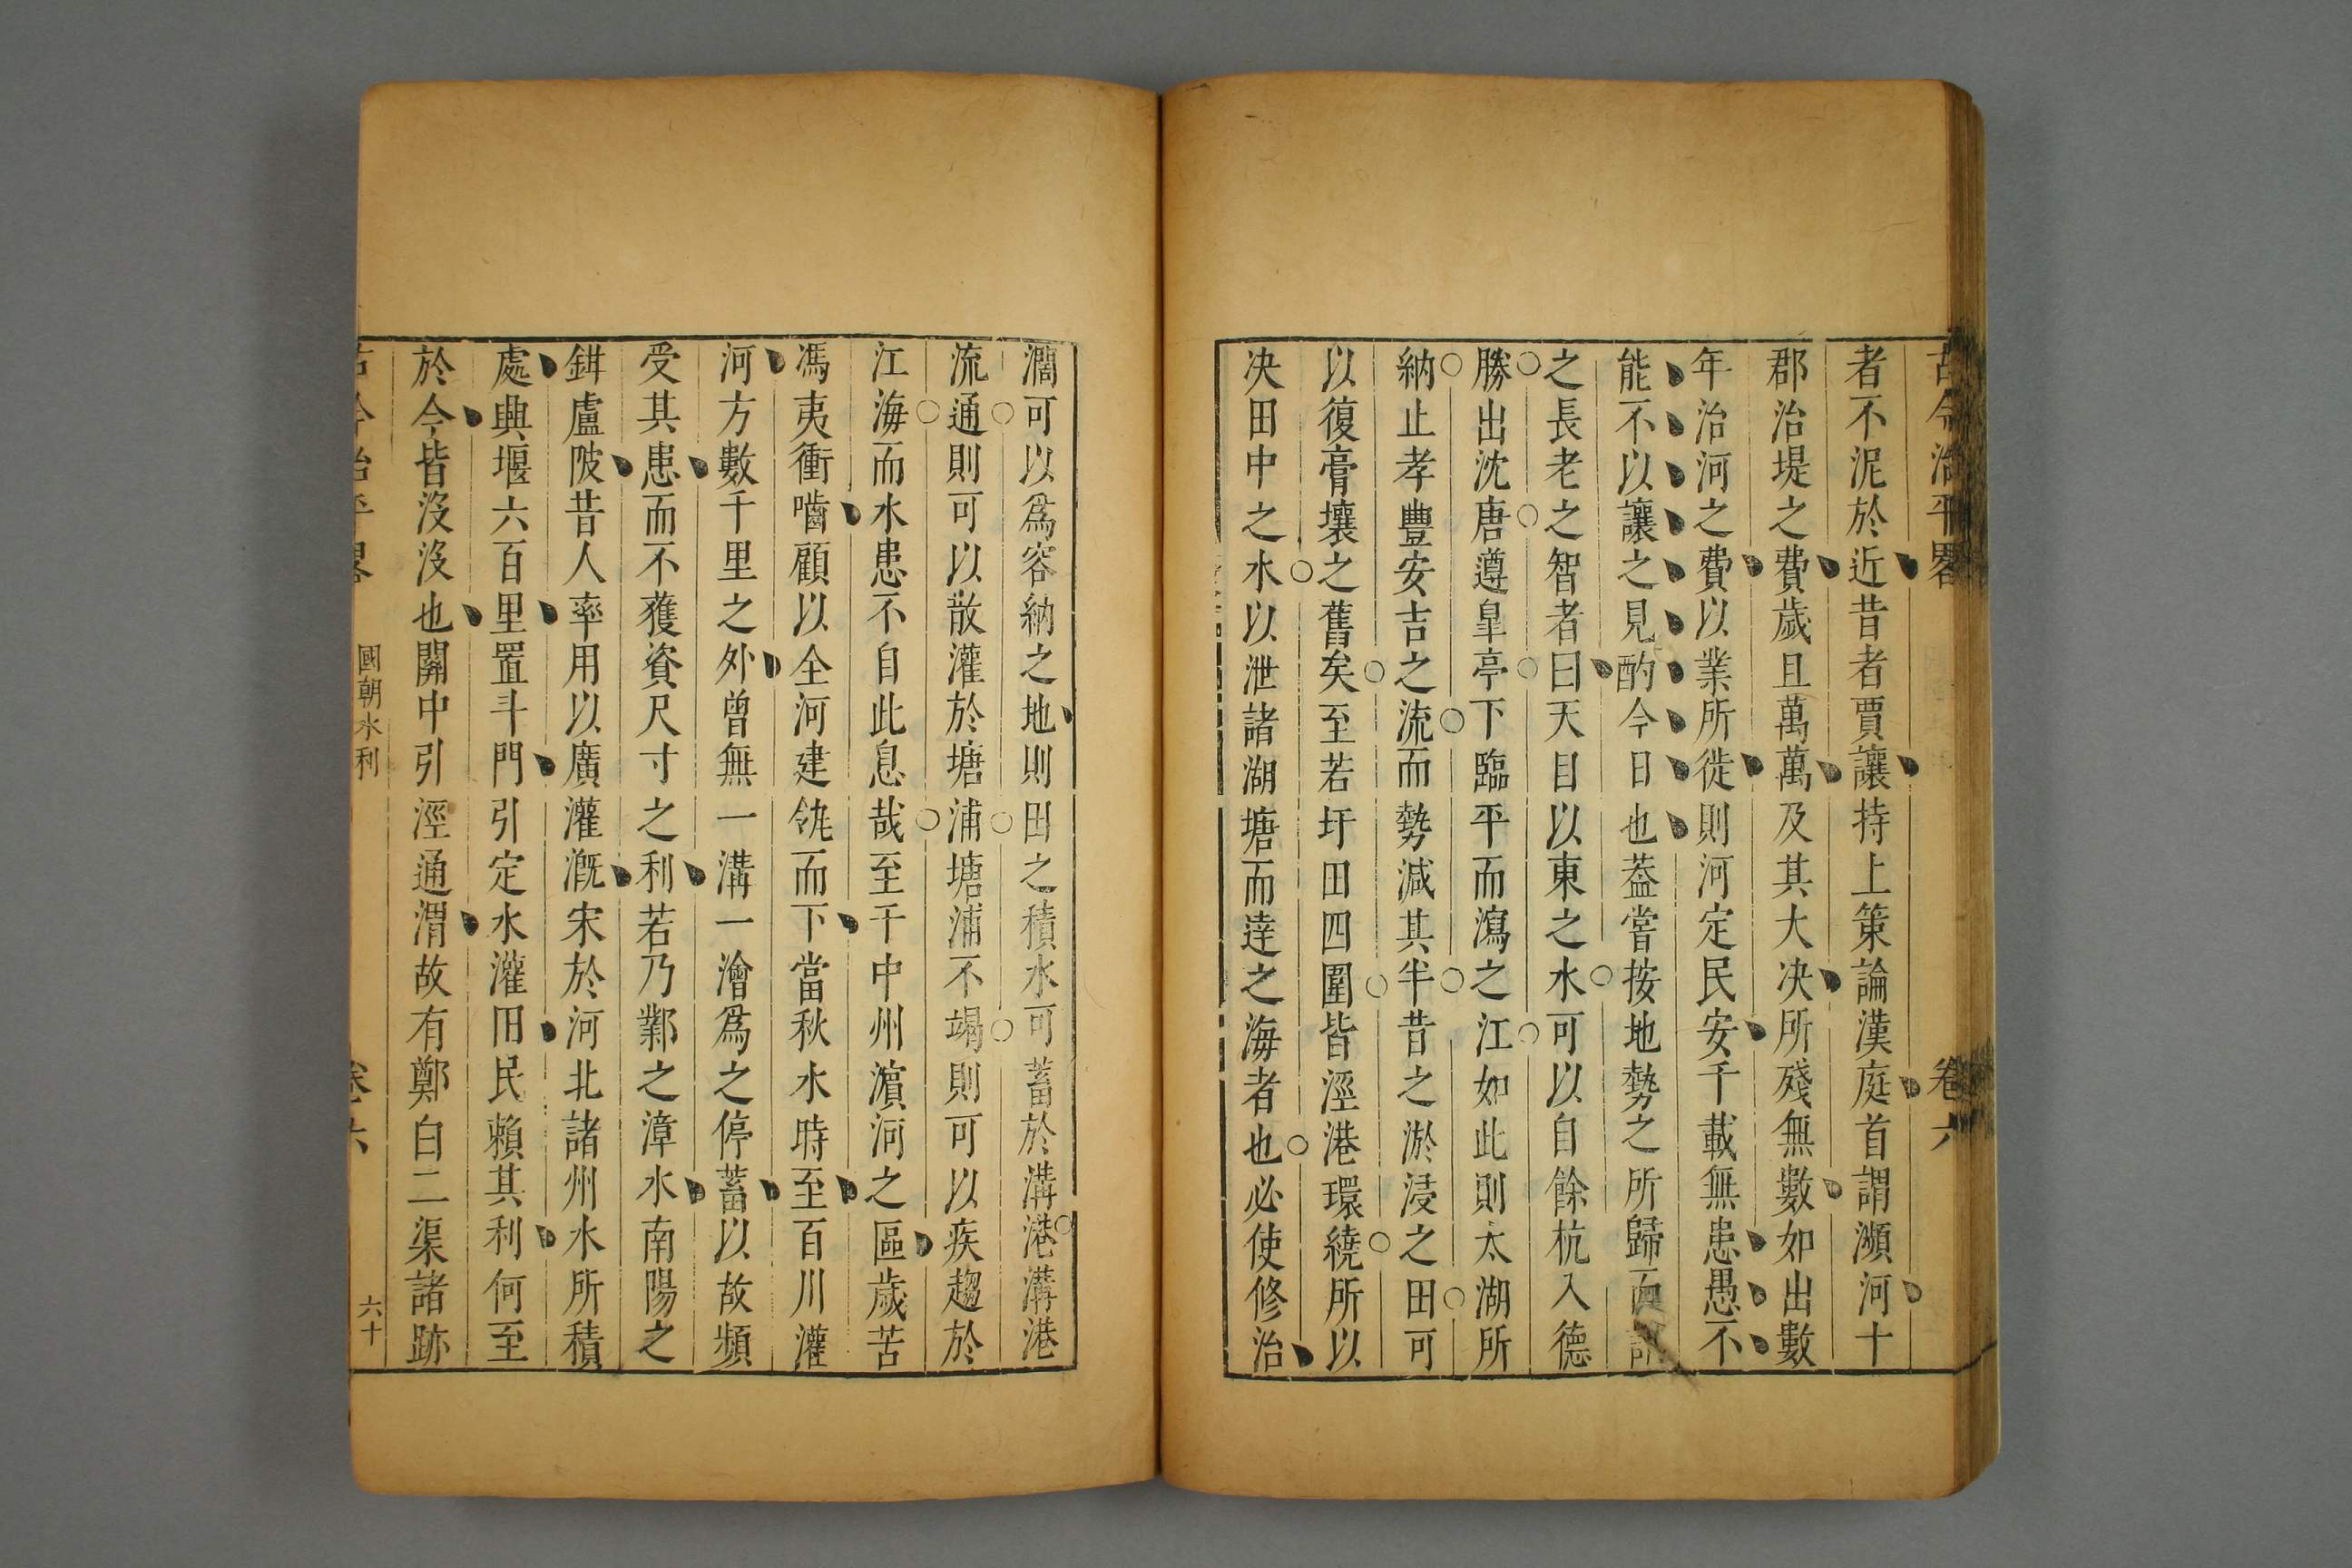 古今治平畧 卷六
者不泥於近昔者賈讓持上策論漢庭首謂瀕河十
郡治堤之費歲且萬萬及其大决所殘無數如出數
年治河之費以業所徙則河定民安千載無患愚不
能不以讓之見酌今日也葢嘗按地勢之所歸而
之長老之智者曰天目以東之水可以自餘杭入德
勝出沈唐遵皐亭下臨平而瀉之江如此則太湖所
納止孝豐安吉之流而勢減其半昔之淤浸之田可
以復膏壤之舊矣至若圩田四圍皆涇港環繞所以
决田中之水以泄諸湖塘而達之海者也必使修治
濶可以爲容納之地則田之積水可蓄於溝港溝港
流通則可以散灌於塘浦塘浦不竭則可以疾趨於
江海而水患不自此息哉至于中州濵河之區歲苦
馮夷衝嚙顧以全河建瓴而下當秋水時至百川灌
河方數千里之外曾無一溝一澮爲之停蓄以故頻
受其患而不獲資尺寸之利若乃鄴之漳水南陽之
鉗盧陂昔人率用以廣灌漑宋於河北諸州水所積
處興堰六百里置斗門引定水灌田民賴其利何至
於今皆沒沒也關中引涇通渭故有鄭白二渠諸跡
古今治平畧 國朝水利 卷六 六十